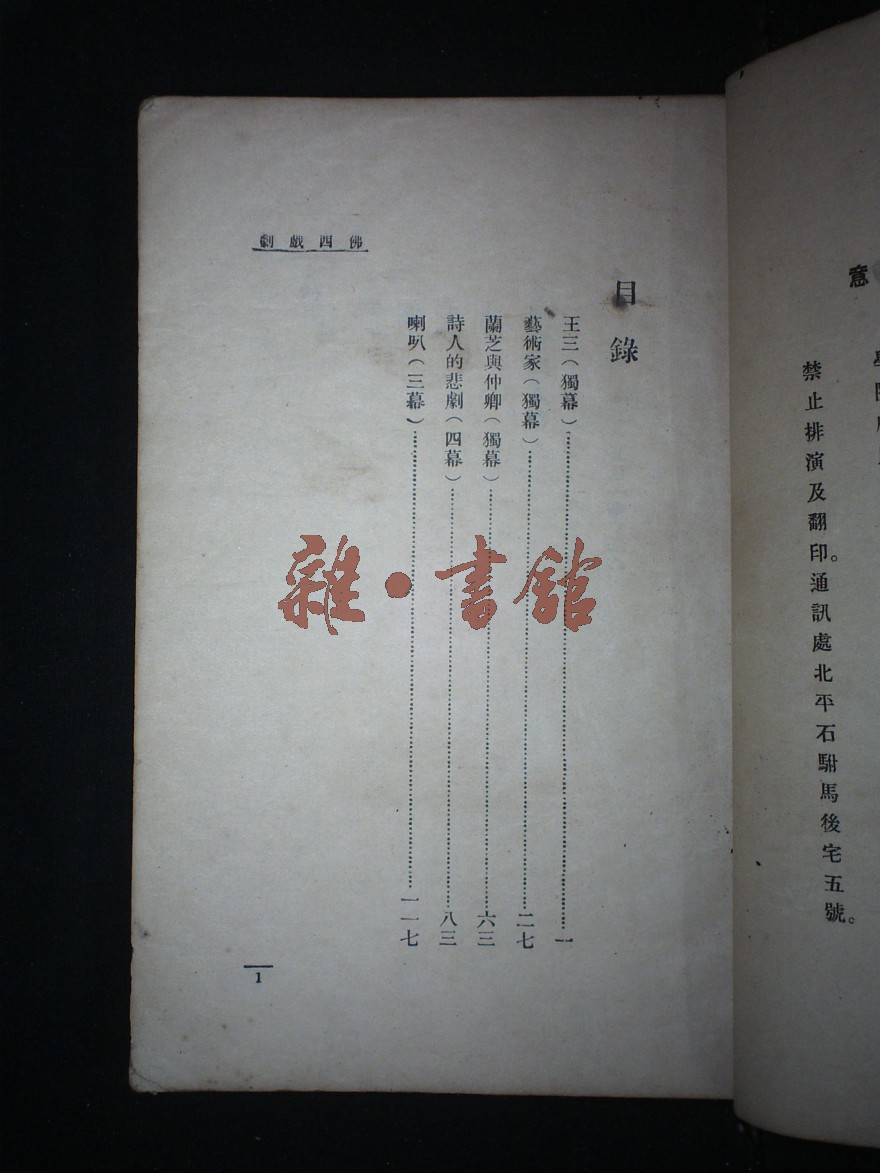 意
禁止排演及翻印。通訊處北平石駙馬後宅五號。
佛西戲劇
目錄
王三（獨幕）……一
藝術家（獨幕）……二七
蘭芝與仲卿（獨幕）……六三
詩人的悲劇（四幕）……八三
喇叭（三幕）……一一七
1
雜·書館